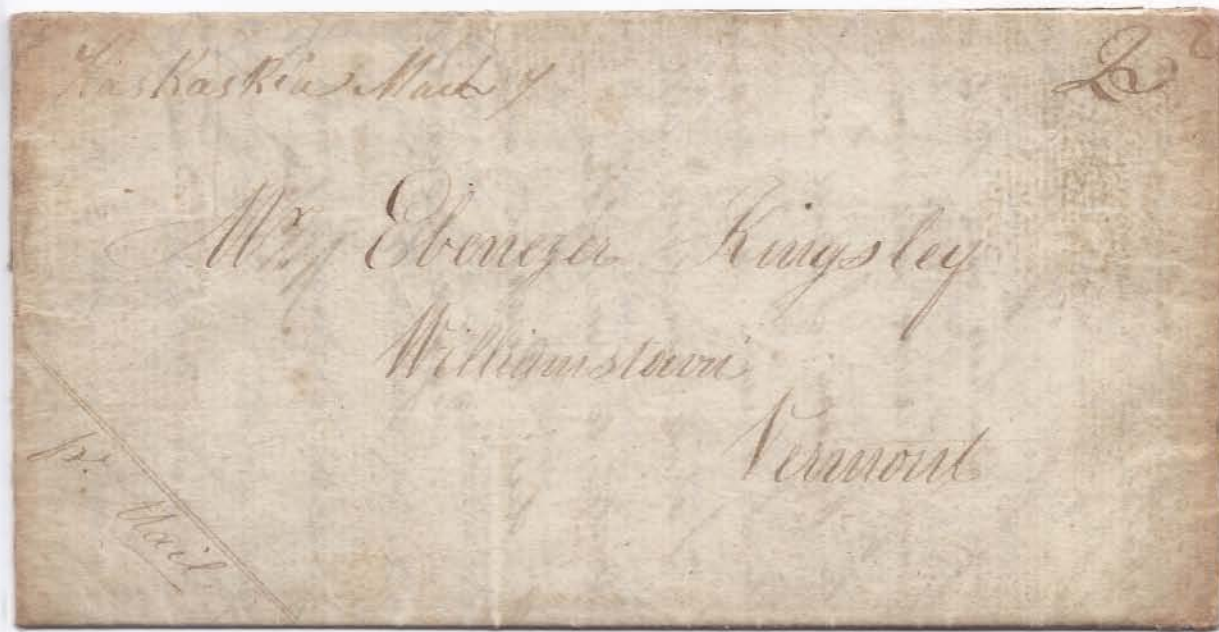 Kaskaskia March 7
Mr Ebenezer Kingsley
Williamstown
Vermont
pr Mail